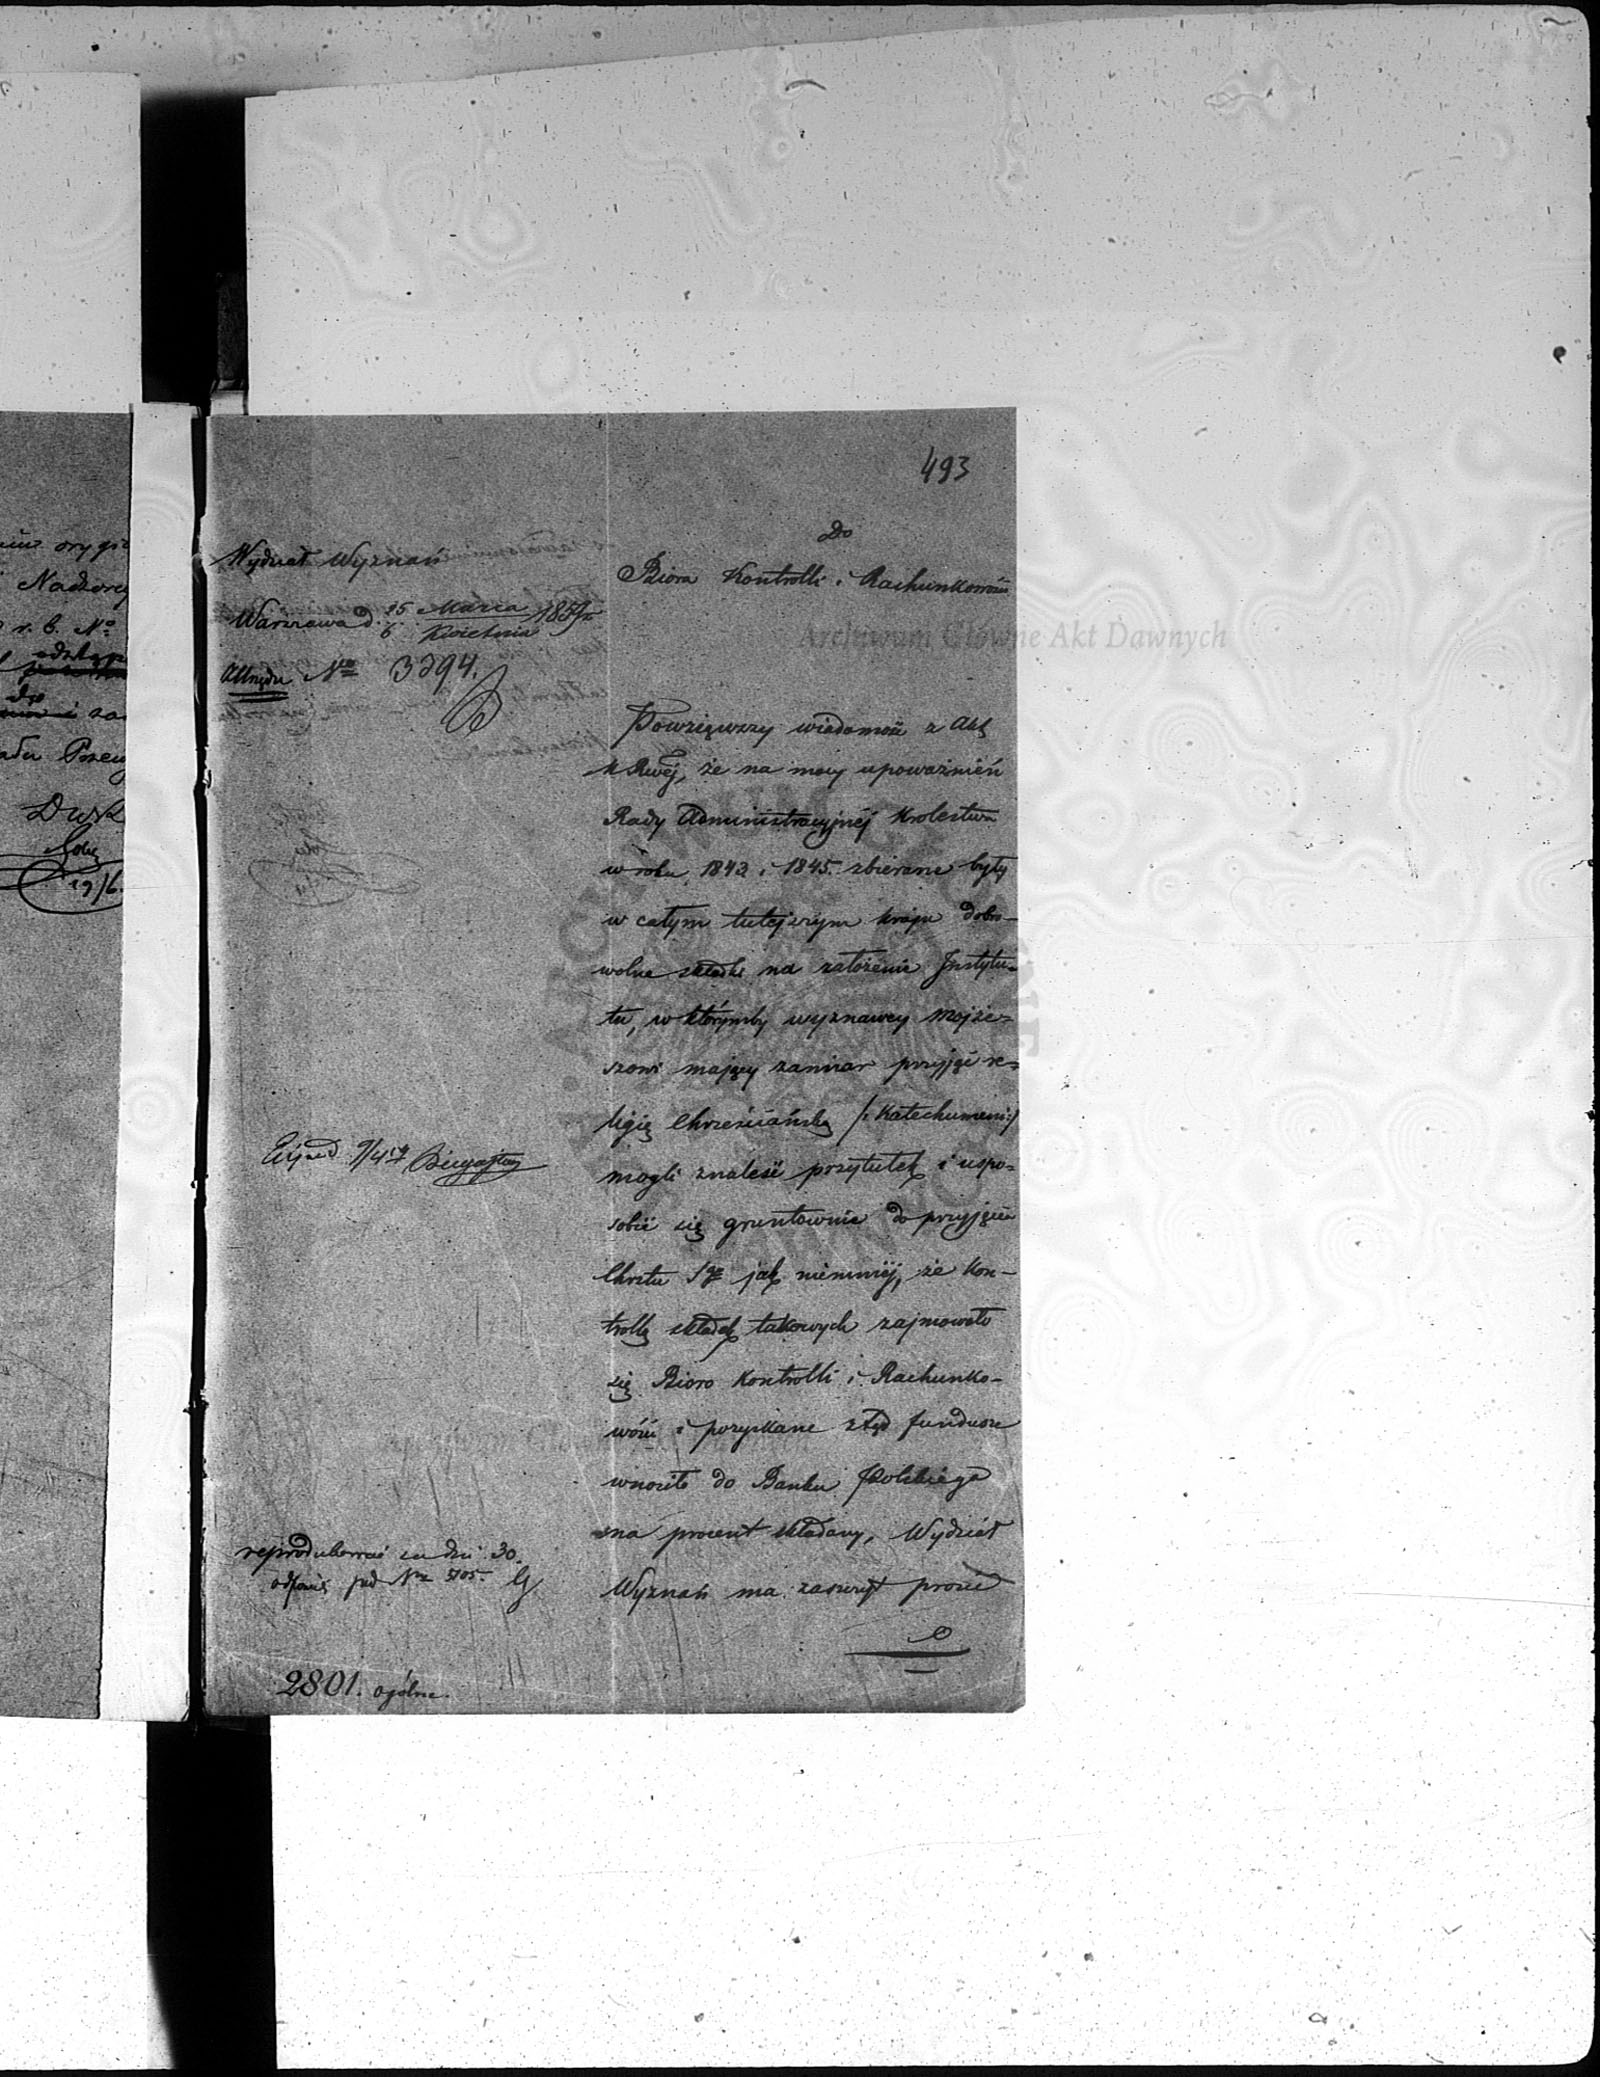 493
Do
Biora Kontrolli i Rachunkowości
Wydział Wyznań
Warszawa d. 25 Marca / 6 Kwietnia 1859 r.
No 3294.
Powziąwszy wiadomość z Akt
K Rwéj, że na mocy upoważnień
Rady Administracyjnéj Krolestwa
w roku 1843 i 1845 zbierane były
w całym tutejszym kraju dobro-
wolne składki na założenie Instytu-
tu, w którymby wyznawcy Mojże-
szowi mający zamiar przyjąć re-
ligię Chrześciańską /: Katechumeni :/
mogli znaleść przytułek i uspo-
sobić się gruntownie do przyjęcia
Chrztu Sgo jak niemniéj, że Kon-
trollą składek takowych zajmowało
się Bioro Kontrolli i Rachunko-
wości i pozyskane ztąd fundusze
wnosiło do Banku Polskiego
na procent składany, Wydział
Wyznań ma zaszczyt prosić
9/4
reprodukować za dni 30.
pod No 5705.
2801. ogólne.
Archiwum Główne Akt Dawnych
oryg
Nadzorcy
r. b. No
do
Przew
19/6.